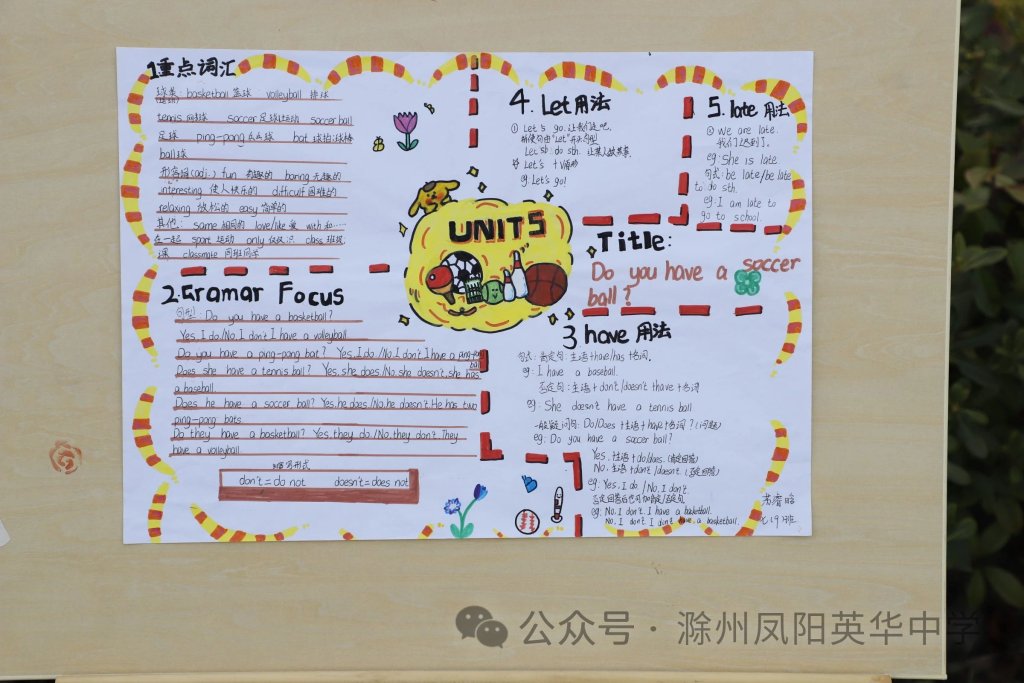 1重点词汇
球类: basketball 篮球 volleyball 排球
tennis 网球 soccer足球运动 soccer ball
足球 ping-pong 乒乓球 bat 球拍;球棒
ball球
形容词(adj.) fun 有趣的 boring 无趣的
interesting 使人快乐的 difficult 困难的
relaxing 放松的 easy 简单的
其他: same 相同的 love/like 爱 with 和……
在一起 sport 运动 only 仅仅,只 class 班级;
课 classmate 同班同学
2.Gramar Focus
句型: Do you have a basketball?
Yes, I do./No, I don't I have a volleyball
Do you have a ping-pong bat? Yes, I do./No, I don't I have a ping-pong
ball
Does she have a tennis ball? Yes, she does./No, she doesn't, she has
a baseball
Does he have a soccer ball? Yes, he does/No, he doesn't. He has two
ping-pong bats
Do they have a basketball? Yes, they do./No, they don't They
have a volleyball
缩写形式
don't=do not doesn't=does not
UNIT5
4. Let用法
① Let's go. 让我们走吧.
Let sb do sth. 让某人做某事.
Let's +V
eg: Let's go!
5. late 用法
① We are late.
我们迟到了.
eg: She is late.
句式: be late/be late
to do sth.
eg: I am late to
go to school.
Title:
Do you have a soccer
ball?
3 have 用法
句式: 肯定句: 主语+have/has+名词.
eg: I have a baseball.
否定句: 主语+don't/doesn't+have+名词
eg: She doesn't have a tennis ball
一般疑问句: Do/Does+主语+have+名词?(问题)
eg: Do you have a soccer ball?
Yes, 主语+do/does. (肯定回答)
No, 主语+don't/doesn't. (否定回答)
eg: Yes, I do /No, I don't.
否定回答后也可加肯定/否定句
eg: No, I don't. I have a basketball.
No, I don't. I don't have a basketball.
七19班
公众号·滁州凤阳英华中学